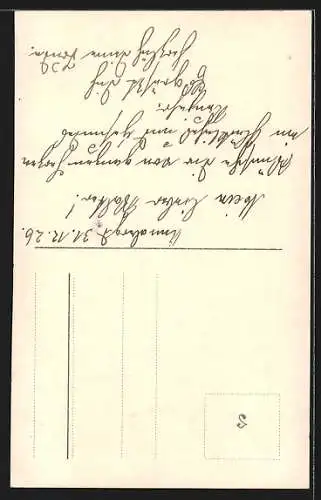 Annaberg, 31.12.26.
Mein lieber Walter!
Wünsche Dir von ganzem Herzen
ein glückliches und gesundes
Neujahr.
Es grüßt Dich
herzlich Deine